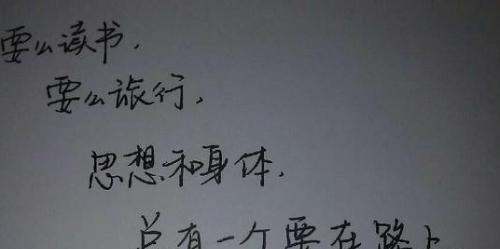 要么读书,
要么旅行,
思想和身体,
总有一个要在路上